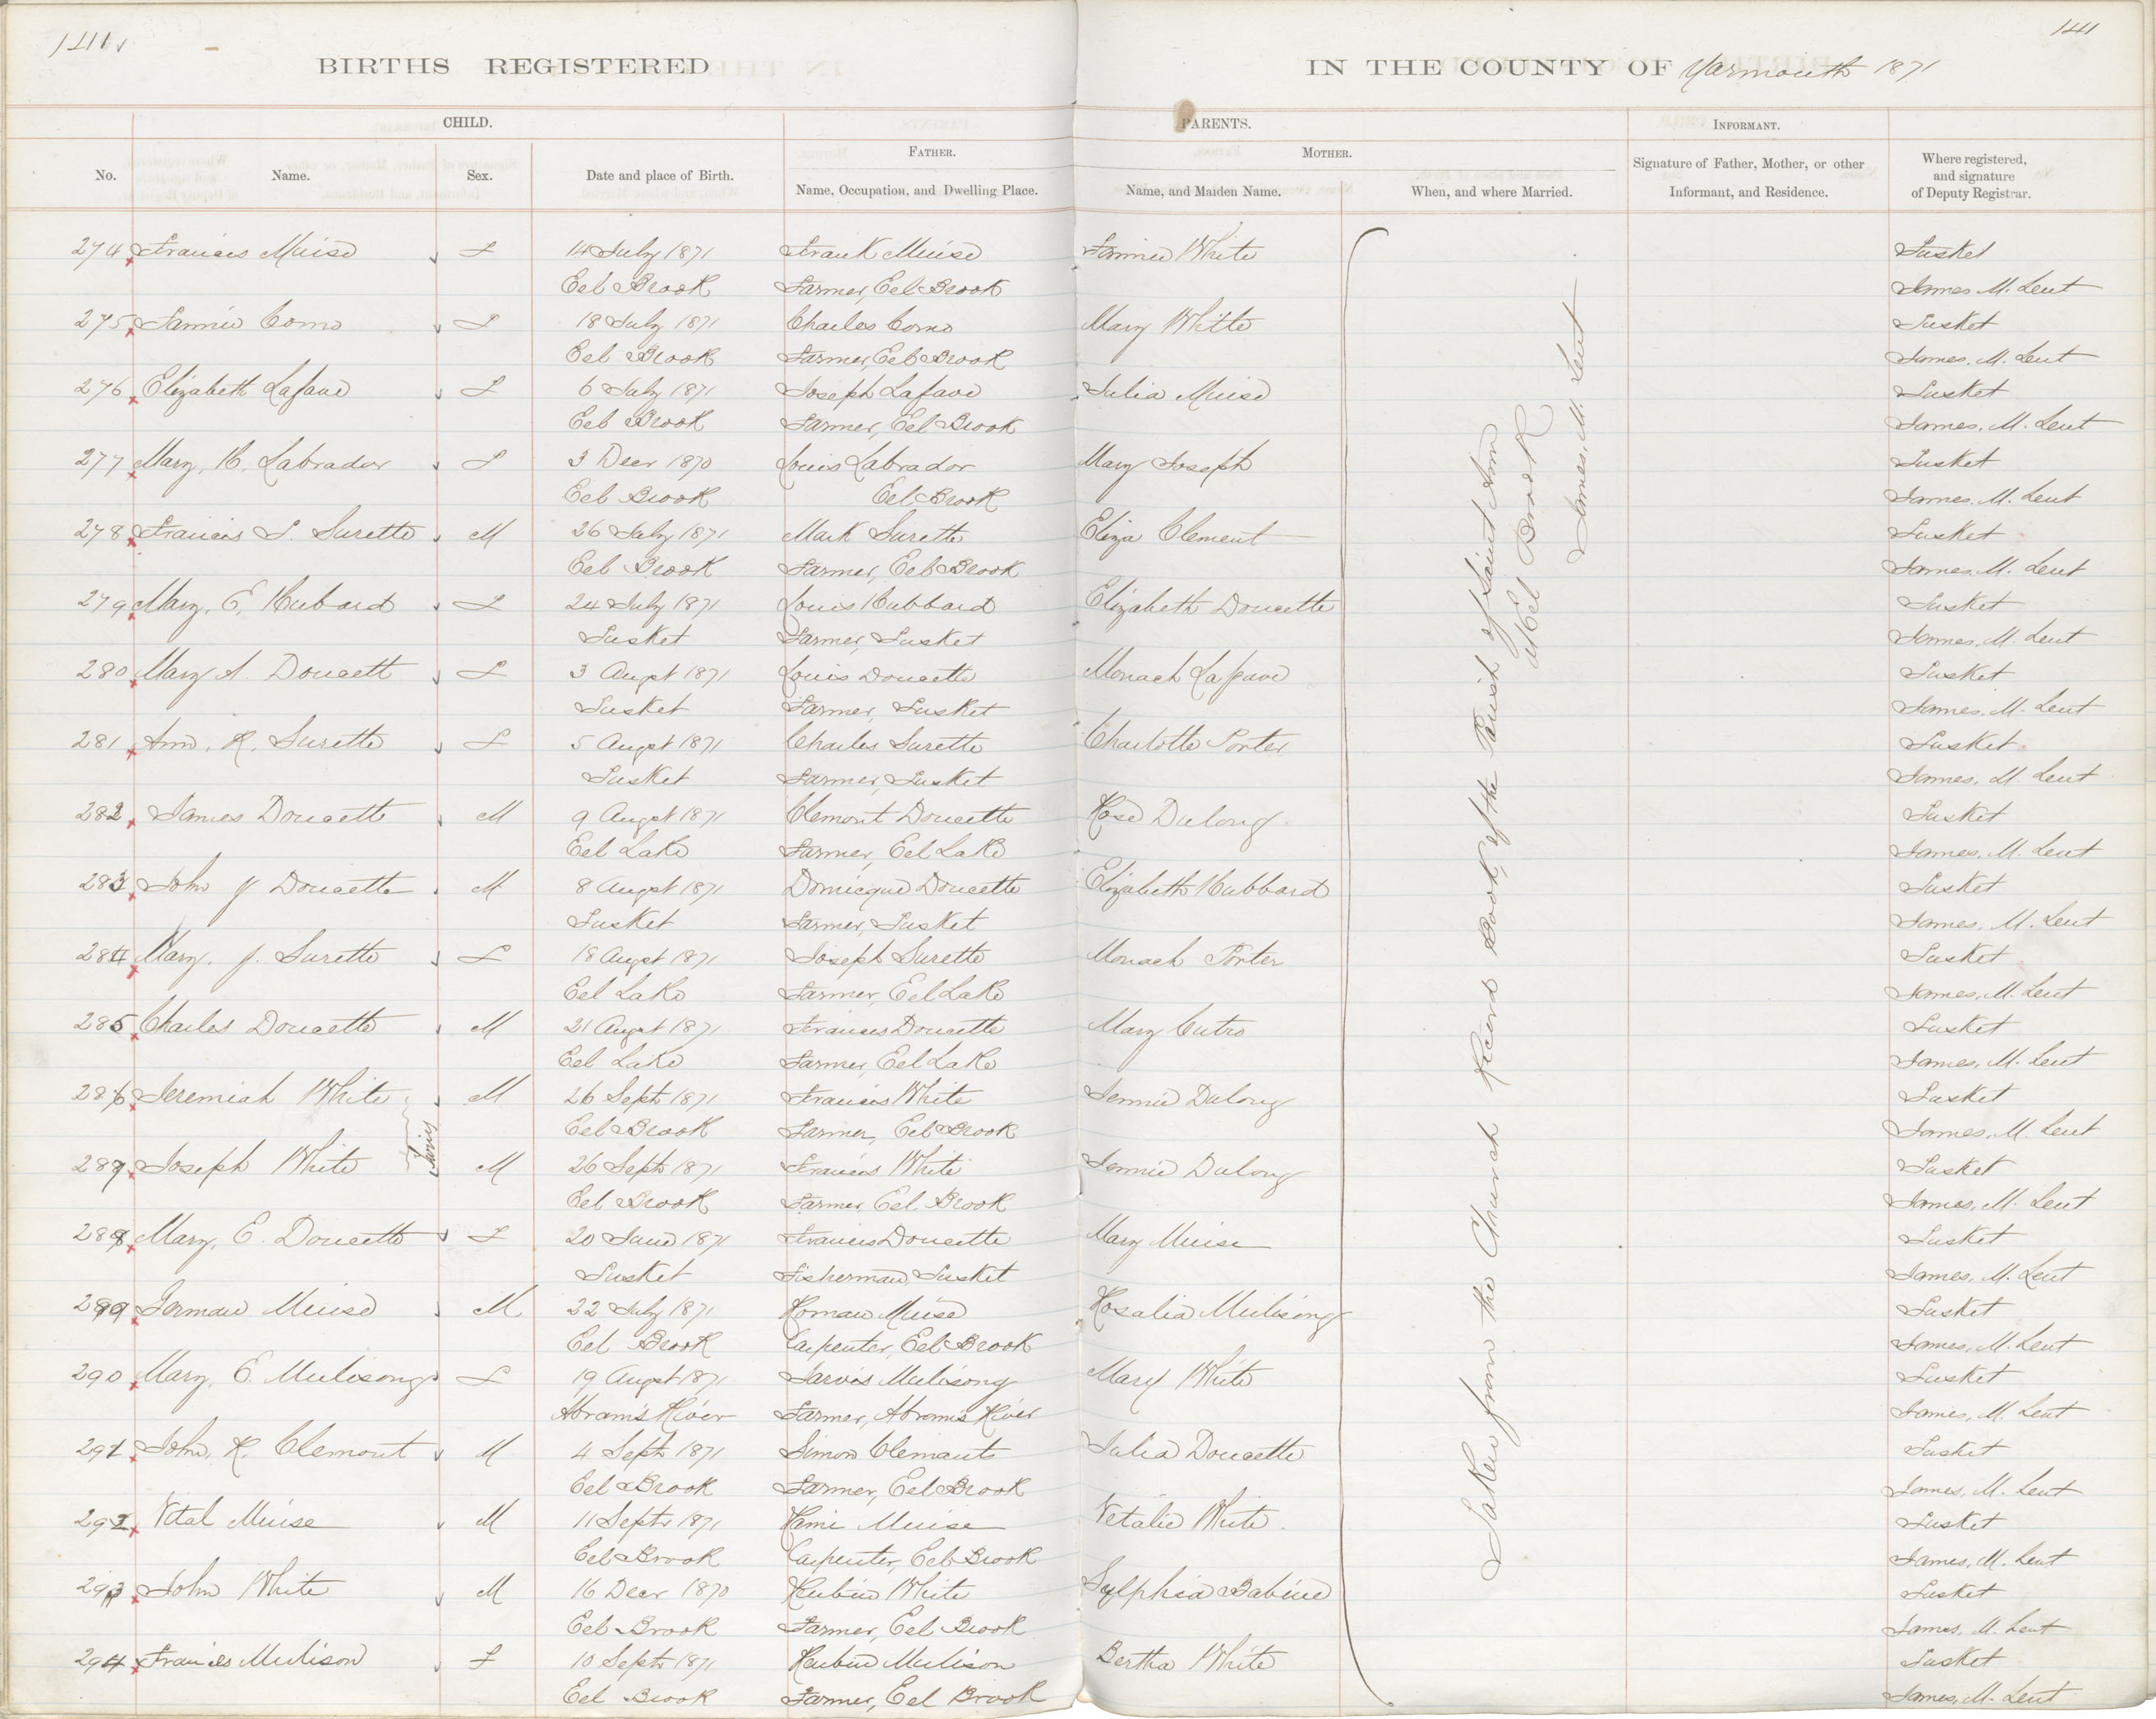 141
141
BIRTHS REGISTERED IN THE COUNTY OF Yarmouth 1871
CHILD. PARENTS. INFORMANT.
FATHER. MOTHER.
No. Name. Sex. Date and place of Birth. Name, Occupation, and Dwelling Place. Name, and Maiden Name. When, and where Married. Signature of Father, Mother, or other Informant, and Residence. Where registered, and signature of Deputy Registrar.
274 Frances Muise F 14 July 1871 Frank Muise Fannie White Tusket
Eel Brook Farmer, Eel Brook James M. Lent
275 Fannie Como F 18 July 1871 Charles Como Mary White Tusket
Eel Brook Farmer, Eel Brook James. M. Lent
276 Elizabeth Lafave F 6 July 1871 Joseph Lafave Julia Muise Tusket
Eel Brook Farmer, Eel Brook James. M. Lent
277 Mary. H. Labrador F 3 Decr 1870 Louis Labrador Mary Joseph Tusket
Eel Brook Eel Brook James. M. Lent
278 Francis S. Surette M 26 July 1871 Mark Surette Eliza Clement Tusket
Eel Brook Farmer, Eel Brook James. M. Lent
279 Mary. E. Hubard F 24 July 1871 Louis Hubbard Elizabeth Doucette Tusket
Tusket Farmer, Tusket James, M. Lent
280 Mary A. Doucett F 3 Augst 1871 Louis Doucette Monach Lafave Tusket
Tusket Farmer, Tusket James. M. Lent
281 Ann. R. Surette F 5 Augst 1871 Charles Surette Charlotte Porter Tusket
Tusket Farmer, Tusket James, M Lent
282 James Doucette M 9 Augst 1871 Clemont Doucette Rose Dulong Tusket
Eel Lake Farmer, Eel Lake James. M. Lent
283 John J Doucette M 8 Augst 1871 Domicque Doucette Elizabeth Hubbard Tusket
Tusket Farmer, Tusket James, M. Lent
284 Mary. J. Surette F 18 Augst 1871 Joseph Surette Monach Porter Tusket
Eel Lake Farmer, Eel Lake James. M. Lent
285 Charles Doucette M 21 Augst 1871 Frances Doucette Mary Cutro Tusket
Eel Lake Farmer, Eel Lake James, M. Lent
286 Jeremiah White M 26 Septr 1871 Francis White Jennie Dulong Tusket
Twins
Eel Brook Farmer, Eel Brook James, M. Lent
287 Joseph White M 26 Septr 1871 Francis White Jennie Dulong Tusket
Eel Brook Farmer, Eel Brook James, M. Lent
288 Mary, E. Doucette F 20 June 1871 Francis Doucette Mary Muise Tusket
Tusket Fisherman, Tusket James, M. Lent
289 German Muise M 22 July 1871 Roman Muise Rosalia Mulisong Tusket
Eel Brook Carpenter, Eel Brook James, M. Lent
290 Mary, E. Mulisong F 19 Augst 1871 Jarvis Mulisong Mary White Tusket
Abram's River Farmer, Abram's River James, M. Lent
291 John, R. Clemont M 4 Septr 1871 Simon Clemants Julia Doucette Tusket
Eel Brook Farmer, Eel Brook James, M. Lent
292 Vital Muise M 11 Septr 1871 Remi Muise Vetalie White Tusket
Eel Brook Carpenter, Eel Brook James, M. Lent
293 John White M 16 Decr 1870 Reubin White Sylphia Babine Tusket
Eel Brook Farmer, Eel Brook James, M. Lent
294 Frances Mulison F 10 Septr 1871 Reubin Mulison Bertha White Tusket
Eel Brook Farmer, Eel Brook James, M. Lent
Taken from the Church Record Book, of the Parish of Saint Ann
at Eel Brook
James, M. Lent